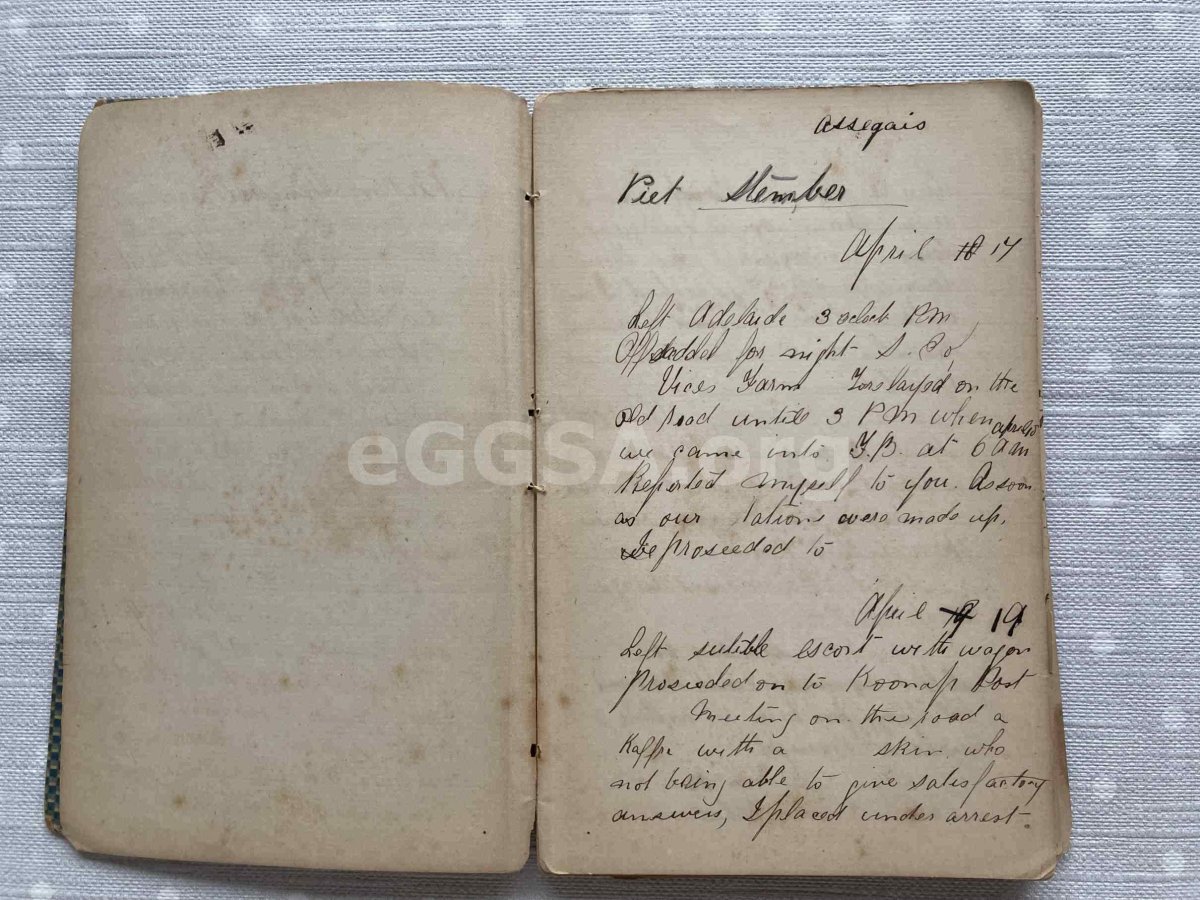 assegais
Piet Stember
April 18 17
Left Adelaide 3 oclock P.M
Offsaddled for night S. Po,
Vices Farm on the
old road until 3 P M when april 18
we came into F.B. at 6 a m
Reported myself to you. As soon
as our rations were made up,
We proseeded to
April 19
Left suitible escort with wagon
Proseeded on to Koonap Post
Meeting on the road a
Kaffir with a skin who
not being able to give satisfactory
answers, I placed under arrest.
eGGSA.org